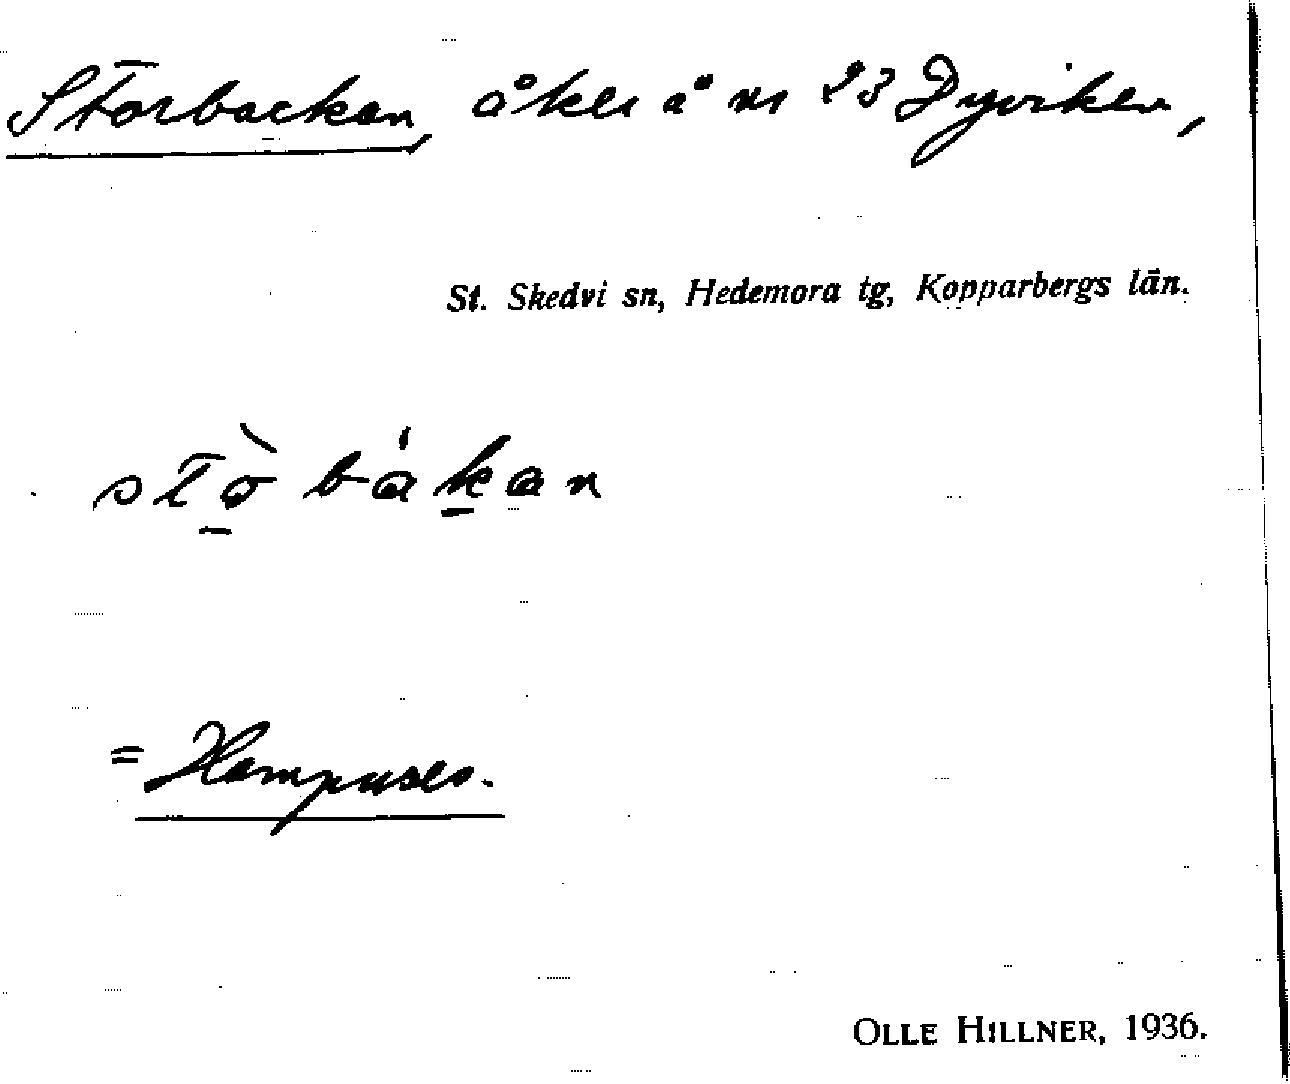 Storbacken, åker å nr 23 Dyviken,
St. Skedvi sn, Hedemora tg, Kopparbergs län.
stò bákan
= Hampuses.
OLLE HILLNER, 1936.